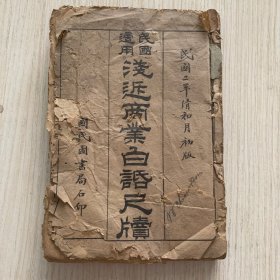 民國二年清和月初版
民國適用
淺近商業白話尺牘
國民圖書局石印